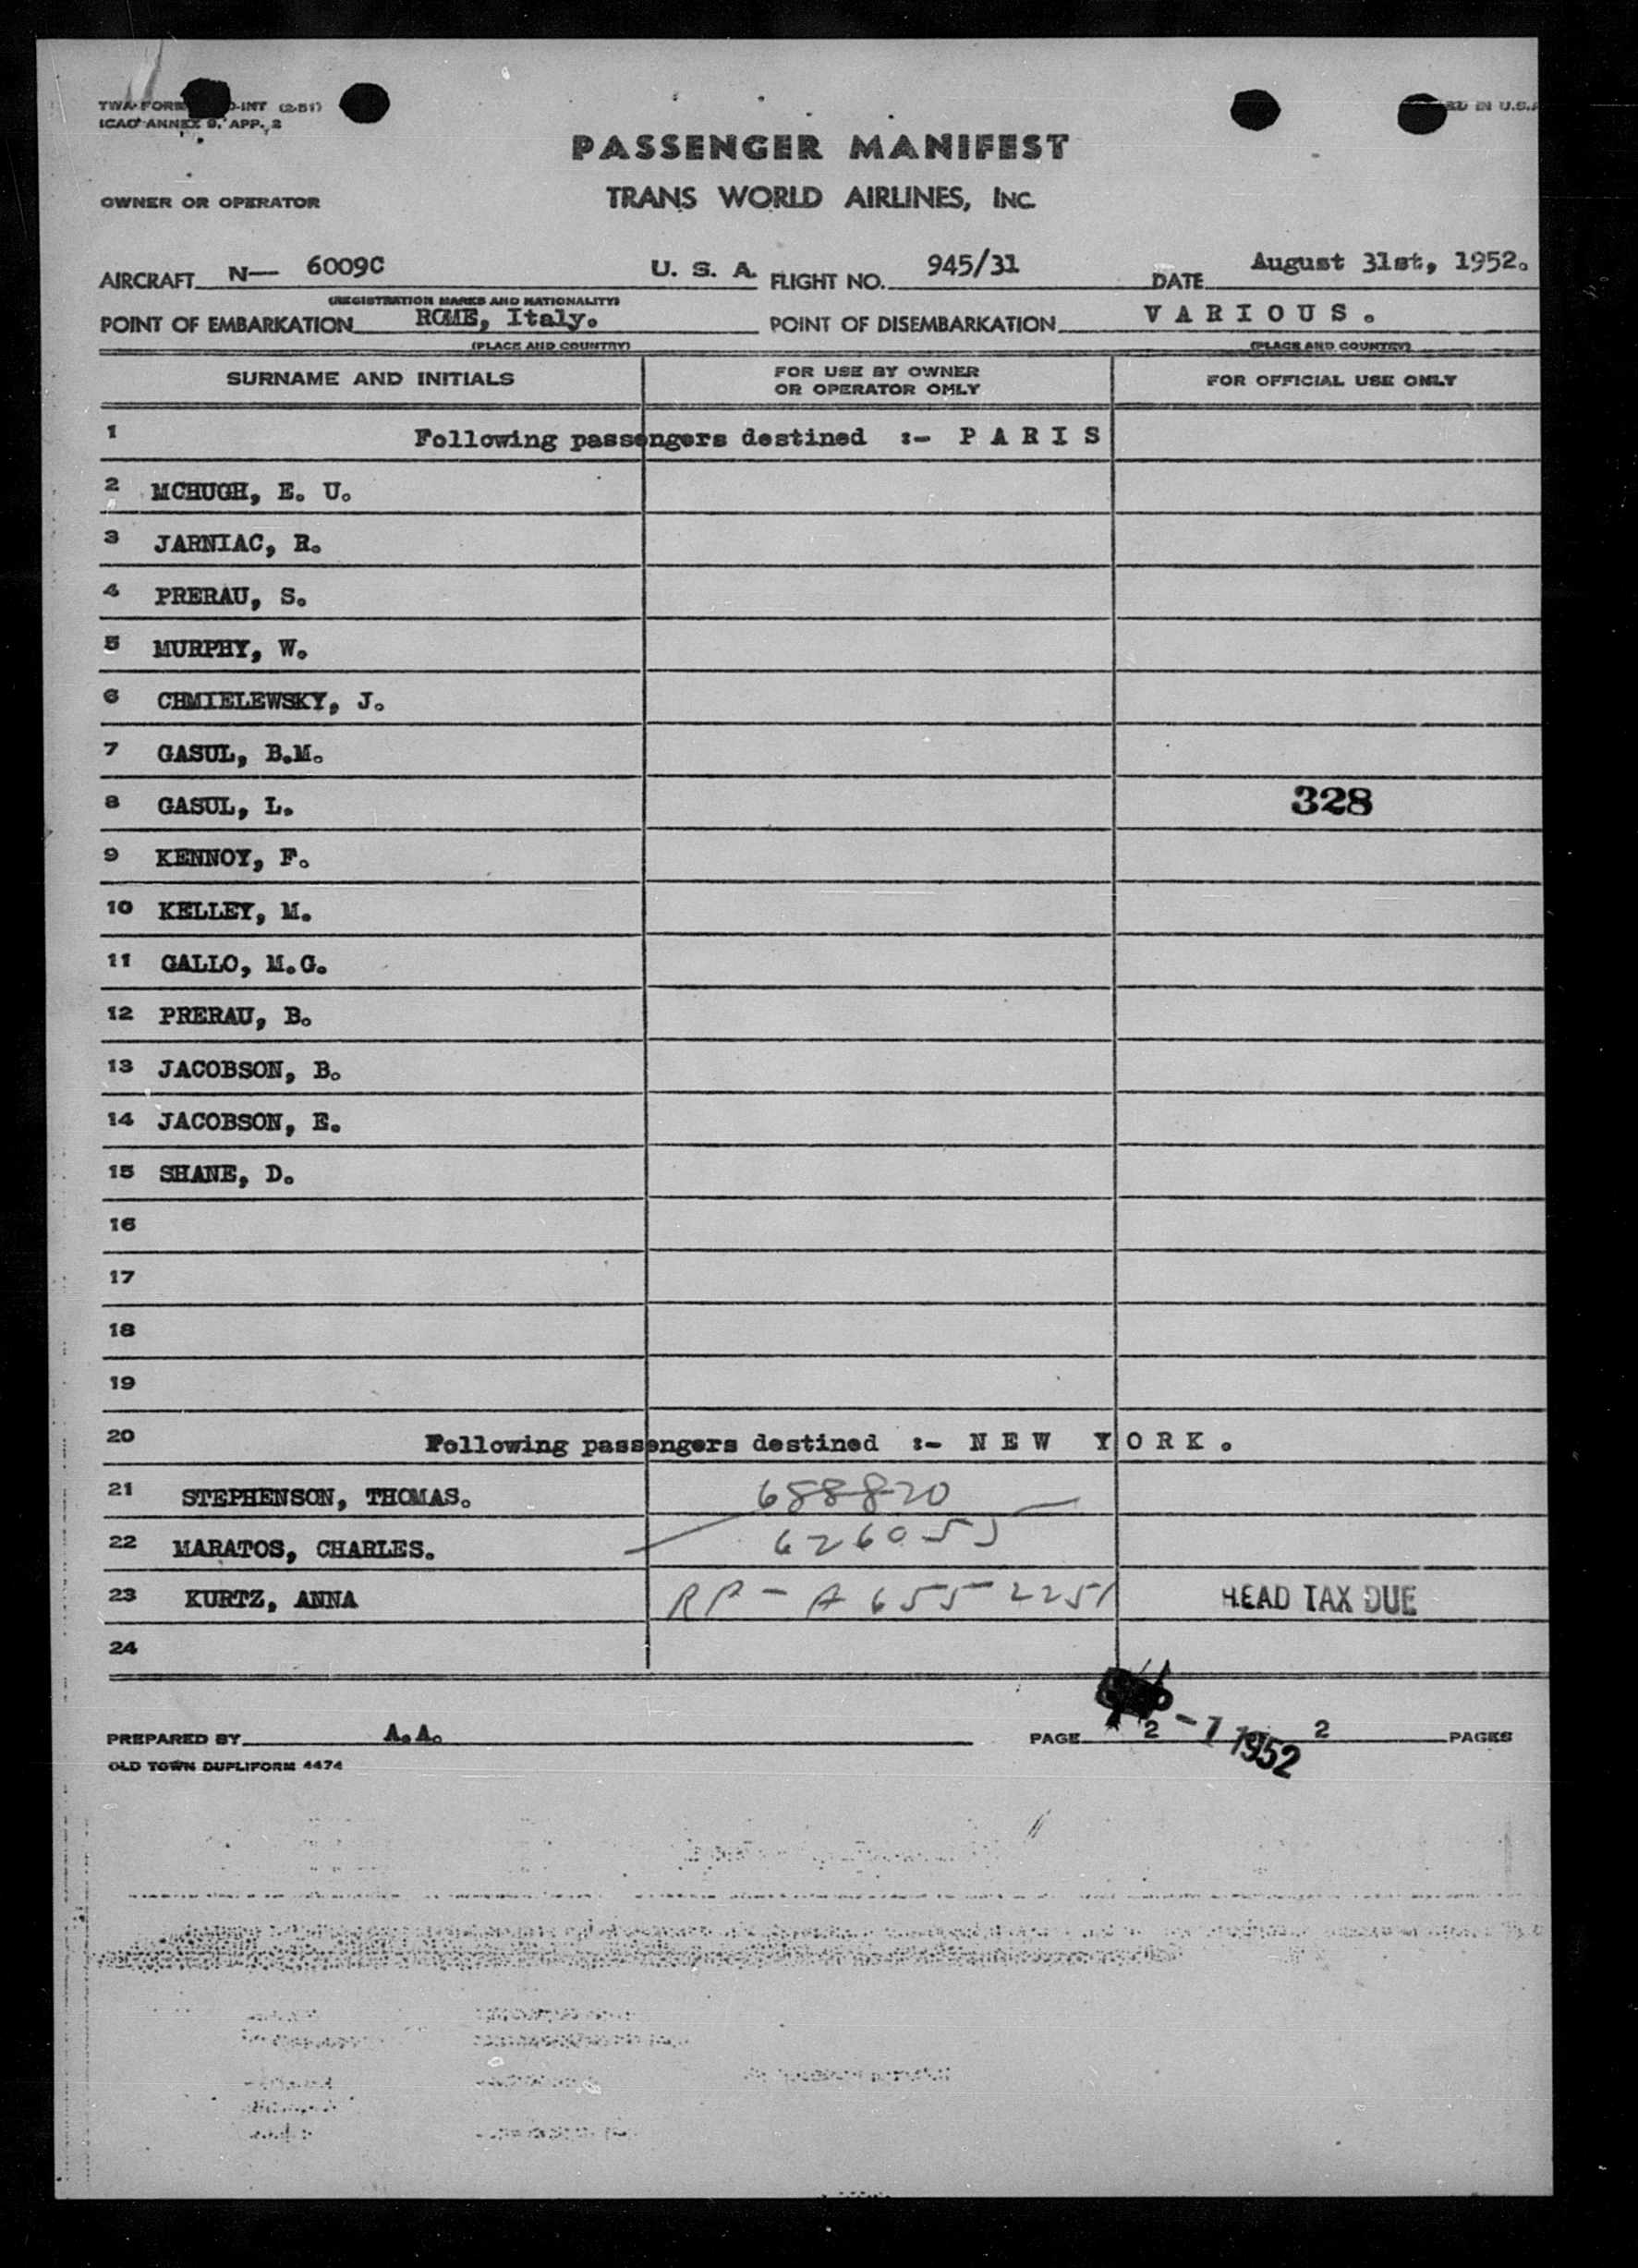 TWA FORM -INT (2-51)
ICAO ANNEX 9, APP. 2
ED IN U.S.A
PASSENGER MANIFEST
OWNER OR OPERATOR TRANS WORLD AIRLINES, INC.
AIRCRAFT N— 6009C U. S. A. FLIGHT NO. 945/31 DATE August 31st, 1952.
(REGISTRATION MARKS AND NATIONALITY)
POINT OF EMBARKATION ROME, Italy. POINT OF DISEMBARKATION VARIOUS.
(PLACE AND COUNTRY) (PLACE AND COUNTRY)
SURNAME AND INITIALS FOR USE BY OWNER OR OPERATOR ONLY FOR OFFICIAL USE ONLY
1 Following passengers destined :- PARIS
2 MCHUGH, E. U.
3 JARNIAC, R.
4 PRERAU, S.
5 MURPHY, W.
6 CHMIELEWSKY, J.
7 GASUL, B.M.
8 GASUL, L. 328
9 KENNOY, F.
10 KELLEY, M.
11 GALLO, M.G.
12 PRERAU, B.
13 JACOBSON, B.
14 JACOBSON, E.
15 SHANE, D.
16
17
18
19
20 Following passengers destined :- NEW YORK.
21 STEPHENSON, THOMAS. 688820
22 MARATOS, CHARLES. 626055
23 KURTZ, ANNA RP - A 655 2251 HEAD TAX DUE
24
PREPARED BY A.A. PAGE 2 2 PAGES
-1 1952
OLD TOWN DUPLIFORM 4474